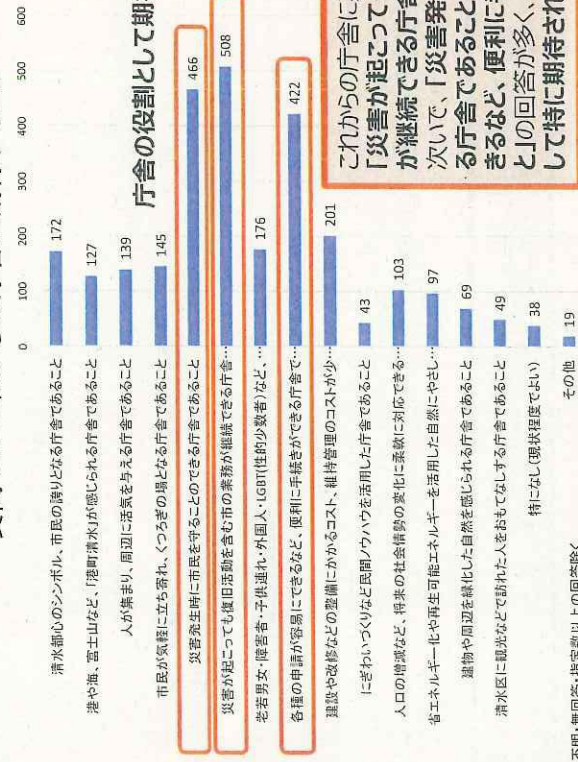 0
100
200
300
400
500
600
清水都心のシンボル、市民の誇りとなる庁舎であること 172
港や海、富士山など、「港町清水」が感じられる庁舎であること 127
人が集まり、周辺に活気を与える庁舎であること 139
市民が気軽に立ち寄れ、くつろぎの場となる庁舎であること 145
災害発生時に市民を守ることのできる庁舎であること 466
災害が起こっても復旧活動を含む市の業務が継続できる庁舎… 508
老若男女・障害者・子供連れ・外国人・LGBT(性的少数者)など、… 176
各種の申請が容易にできるなど、便利に手続きができる庁舎で… 422
建設や改修などの整備にかかるコスト、維持管理のコストが少… 201
にぎわいづくりなど民間ノウハウを活用した庁舎であること 43
人口の増減など、将来の社会情勢の変化に柔軟に対応できる… 103
省エネルギー化や再生可能エネルギーを活用した自然にやさし… 97
建物や周辺を緑化した自然を感じられる庁舎であること 69
清水区に観光などで訪れた人をおもてなしする庁舎であること 49
特になし(現状程度でよい) 38
その他 19
不明・無回答・指定数以上の回答除く
庁舎の役割として期
これからの庁舎に
「災害が起こって
が継続できる庁舎
次いで、「災害発
る庁舎であること
きるなど、便利に
と」の回答が多く、
して特に期待され